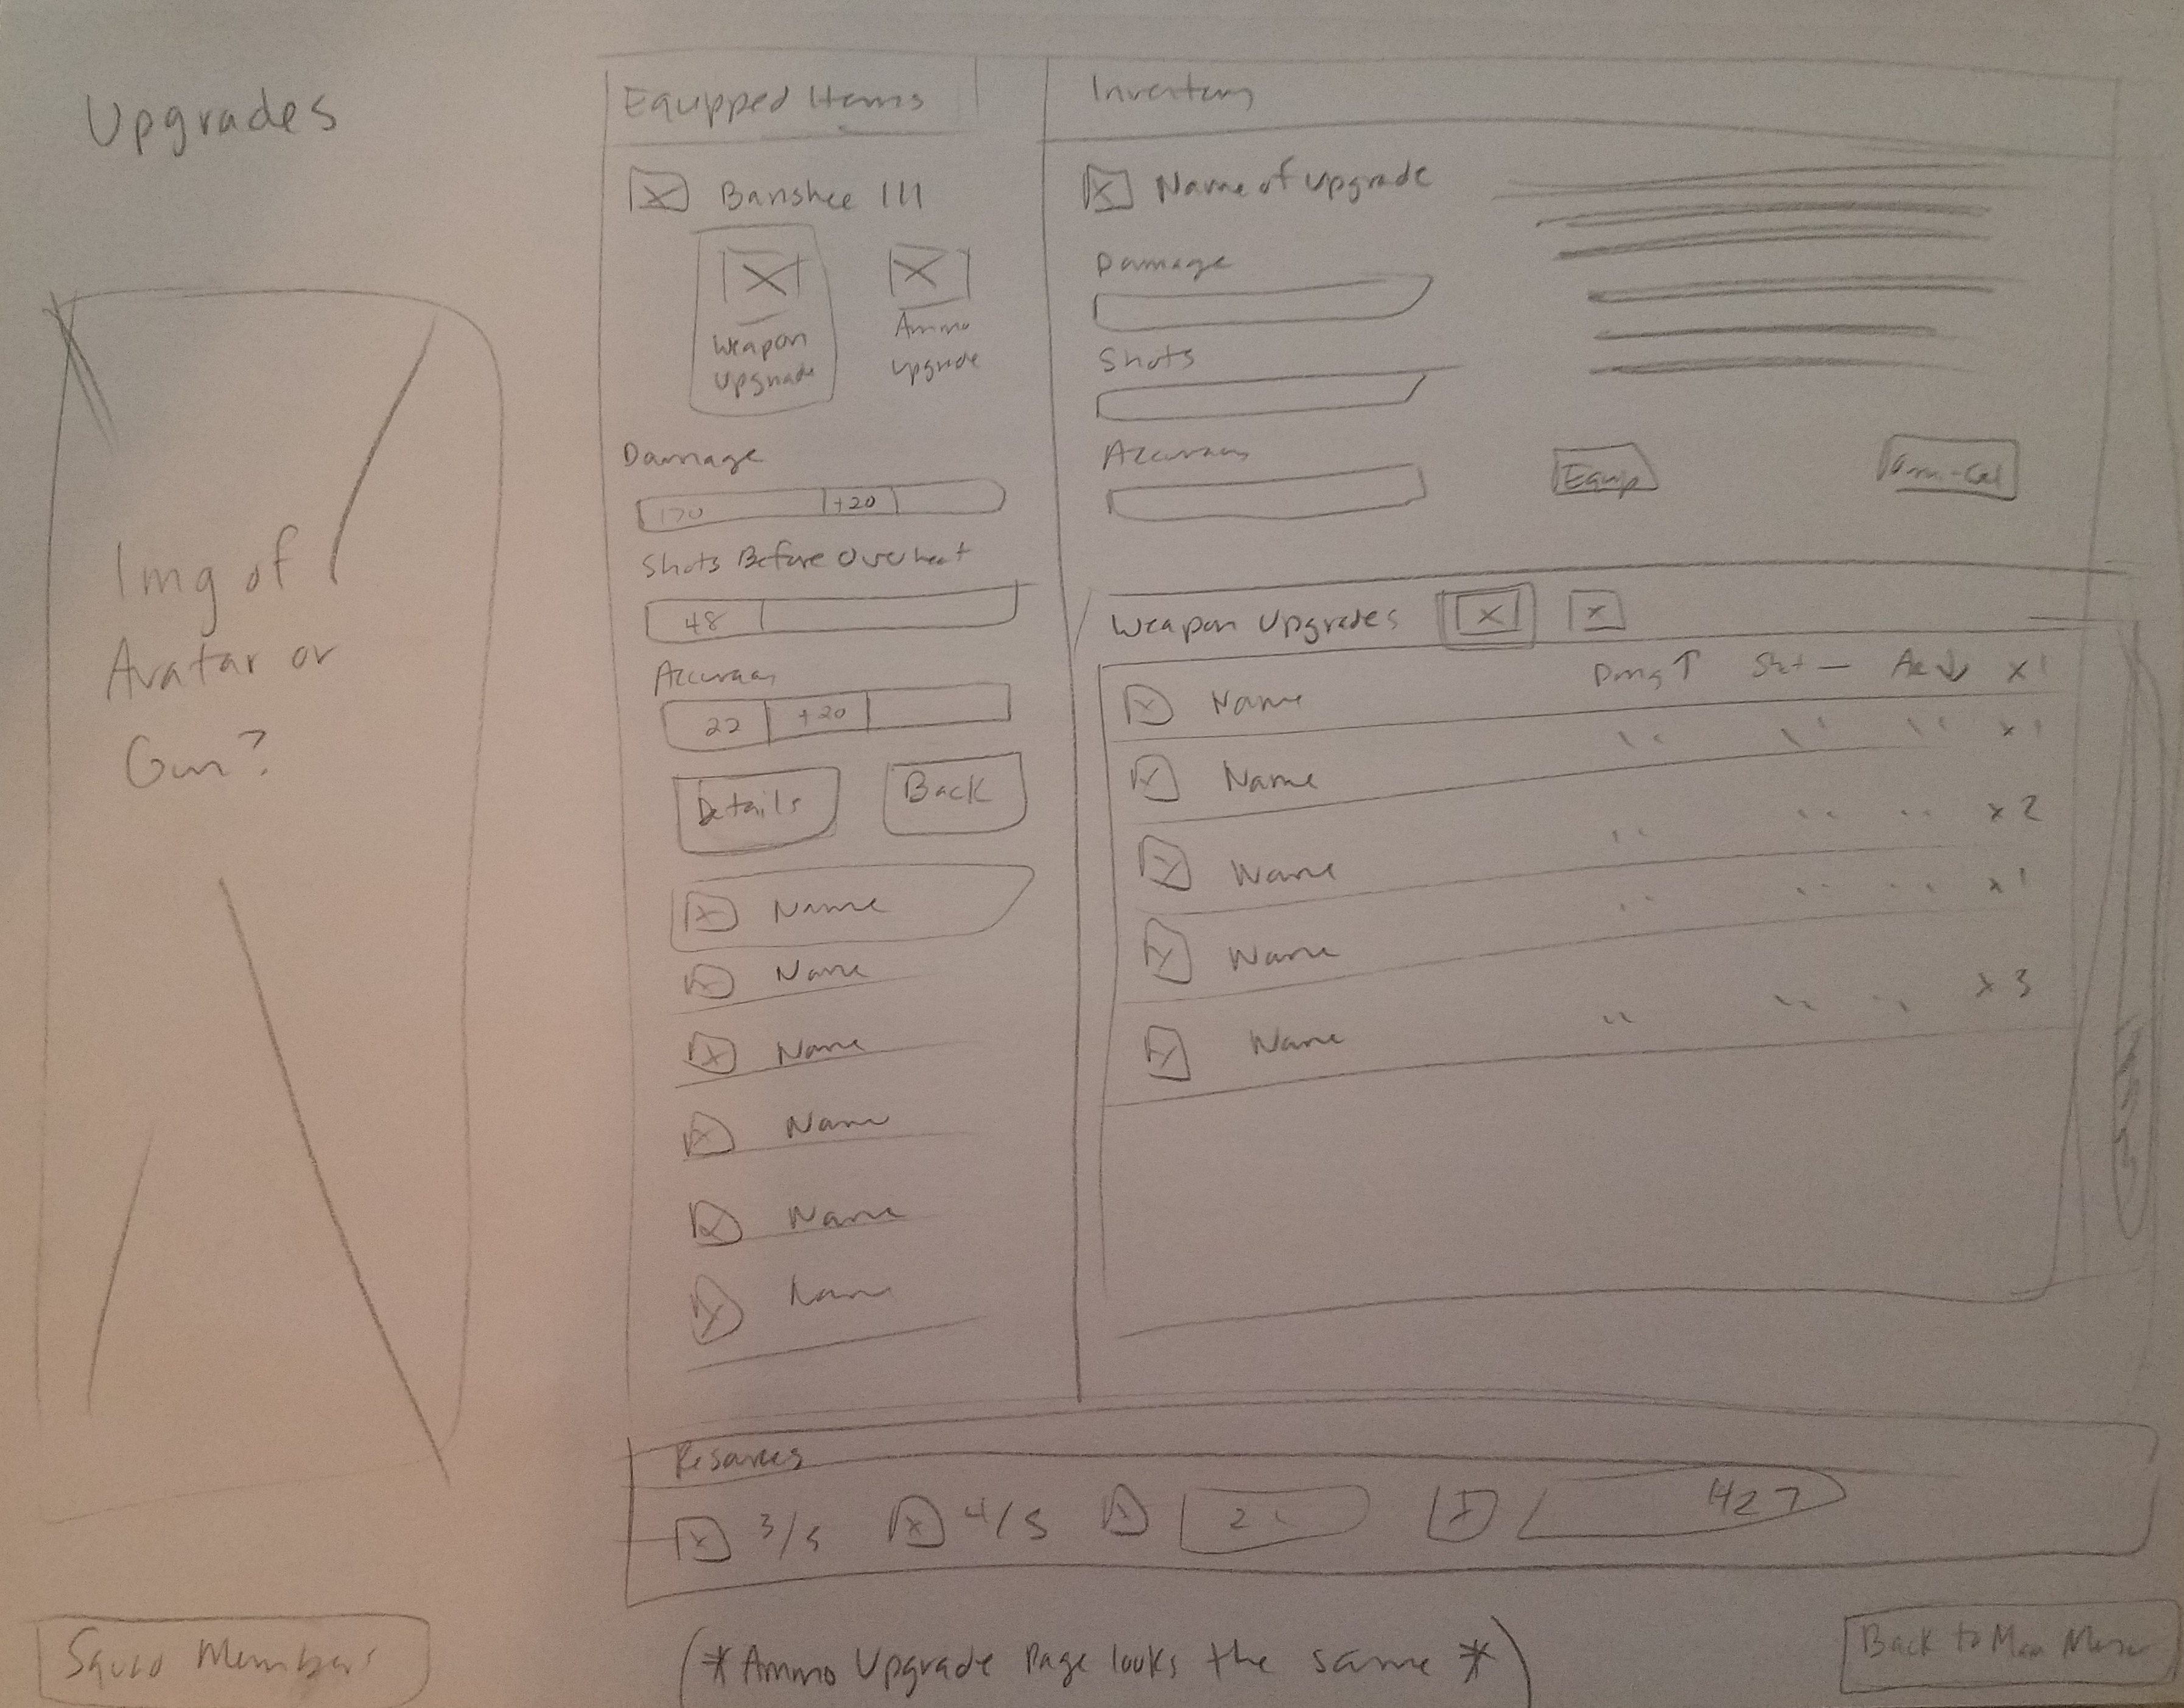 Upgrades
Img of
Avatar or
Gun?
Squad Members
Equipped Items
Banshee III
Weapon
Upgrade
Ammo
Upgrade
Damage
170 +20
Shots Before Overheat
48
Accuracy
22 +20
Details
Back
Name
Name
Name
Name
Name
Name
Inventory
Name of Upgrade
Damage
Shots
Accuracy
Equip
Weapon Upgrades
Name Dmg ↑ Sht — Ac ↓ x1
Name " " " x1
Name " " " x2
Name " " " x1
Name " " " x3
Resources
3/5 4/5 427
(*Ammo Upgrade Page looks the same *)
Back to Main Menu